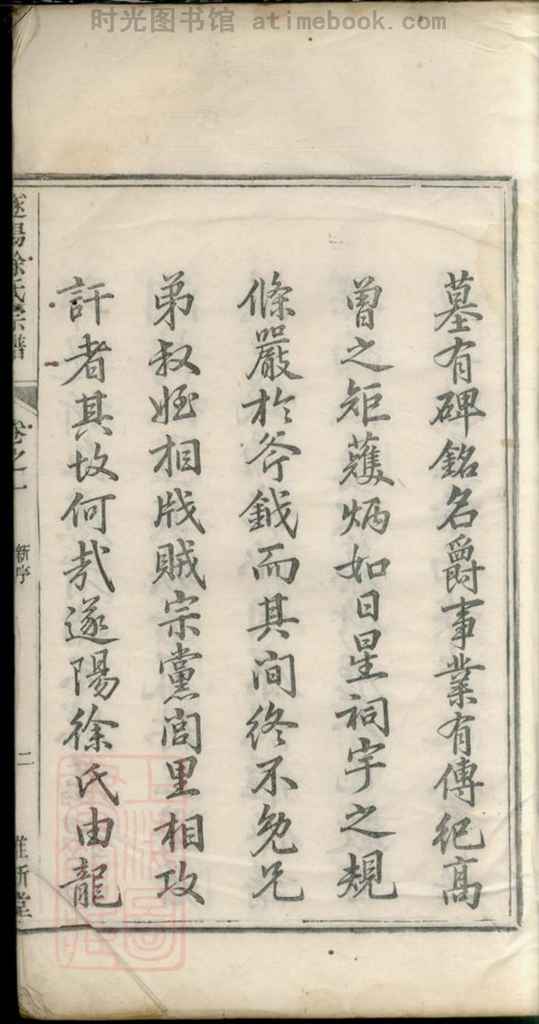 时光图书馆 atimebook.com
墓有碑銘名爵事業有傳纪高
曾之矩蒦炳如日星祠宇之規
條嚴於斧鉞而其间终不免兄
弟叔姪相戕賊宗黨闾里相攻
訐者其故何哉遂陽徐氏由龍
遂陽徐氏宗譜
卷之一
新序
二
維新堂